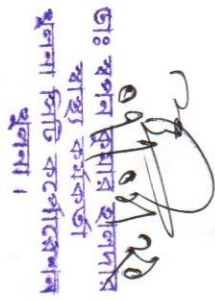 ০৭/০৭/২০
ডাঃ স্বপন কুমার হালদার
স্বাস্থ্য কর্মকর্তা
খুলনা সিটি কর্পোরেশন
খুলনা ।